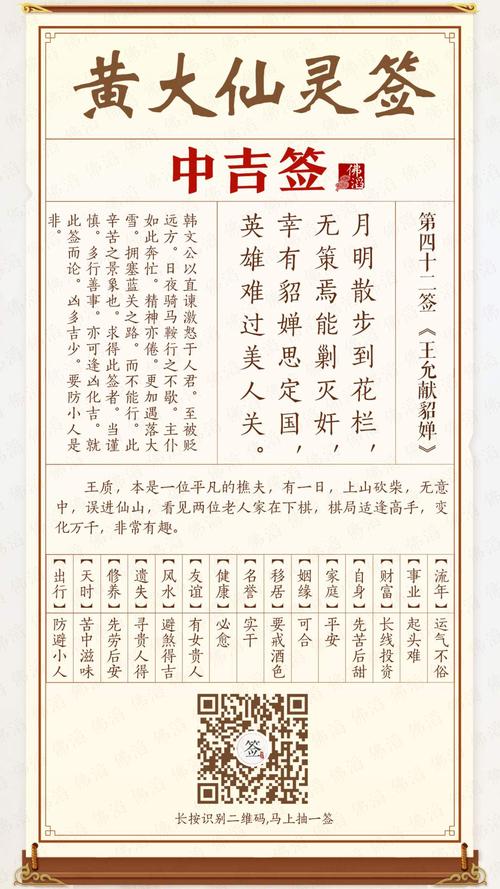 黄大仙灵签
中吉签
佛滔
第四十二签《王允献貂婵》
月明散步到花栏，
无策焉能剿灭奸，
幸有貂婵思定国，
英雄难过美人关。
韩文公以直谏激怒于人君。至被贬
远方。日夜骑马鞍行之不歇。主仆
如此奔忙。精神亦倦。更加遇落大
雪。拥塞蓝关之路。而不能行。此
辛苦之景象也。求得此签者。当谨
慎。多行善事。亦可逢凶化吉。就
此签而论。凶多吉少。要防小人是
非。
王质，本是一位平凡的樵夫，有一日，上山砍柴，无意
中，误进仙山，看见两位老人家在下棋，棋局适逢高手，变
化万千，非常有趣。
【流年】运气不俗
【事业】起头难
【财富】长线投资
【自身】先苦后甜
【家庭】平安
【姻缘】可合
【移居】要戒酒色
【名誉】实干
【健康】必愈
【友谊】有女贵人
【风水】避煞得吉
【遗失】寻贵人得
【修养】先劳后安
【天时】苦中滋味
【出行】防避小人
签
长按识别二维码,马上抽一签